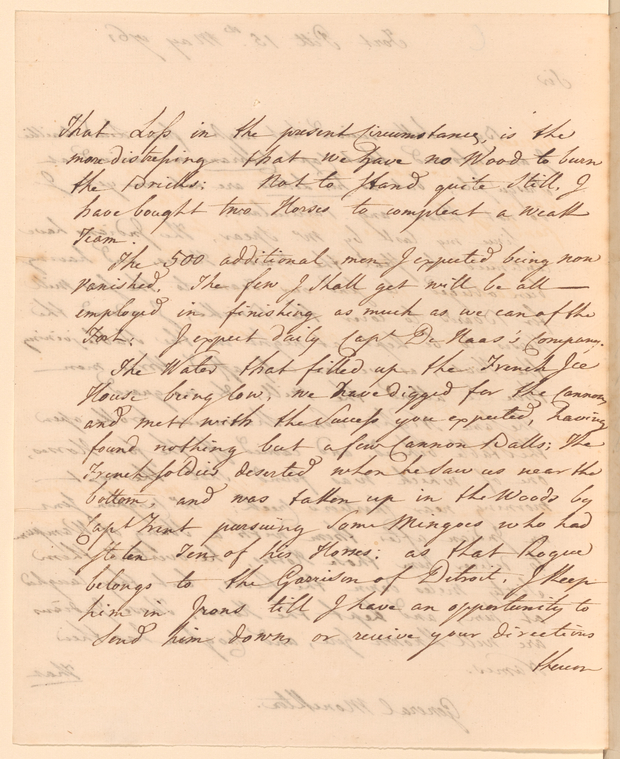 That Loss in the present Circumstances, is the
more distressing that we have no Wood to burn
the Bricks: Not to Stand quite Still, I
have bought two Horses to compleat a weak
Team.
The 500 additional men I expected being now
vanished, The few I Shall get will be all
employed in finishing as much as we can of the
Fort: I expect daily Capt De Haas's Company.
The Water that filled up the French Ice
House being low, we have digged for the Cannon,
and met with the Success you expected, having
found nothing but a few Cannon Balls; The
French Soldier deserted when he saw us near the
bottom, and was taken up in the Woods by
Capt Trent pursuing Some Mingoes who had
Stolen Ten of his Horses: as that Rogue
belongs to the Garrison of Detroit, I keep
him in Irons till I have an opportunity to
Send him down or receive your directions
thereon